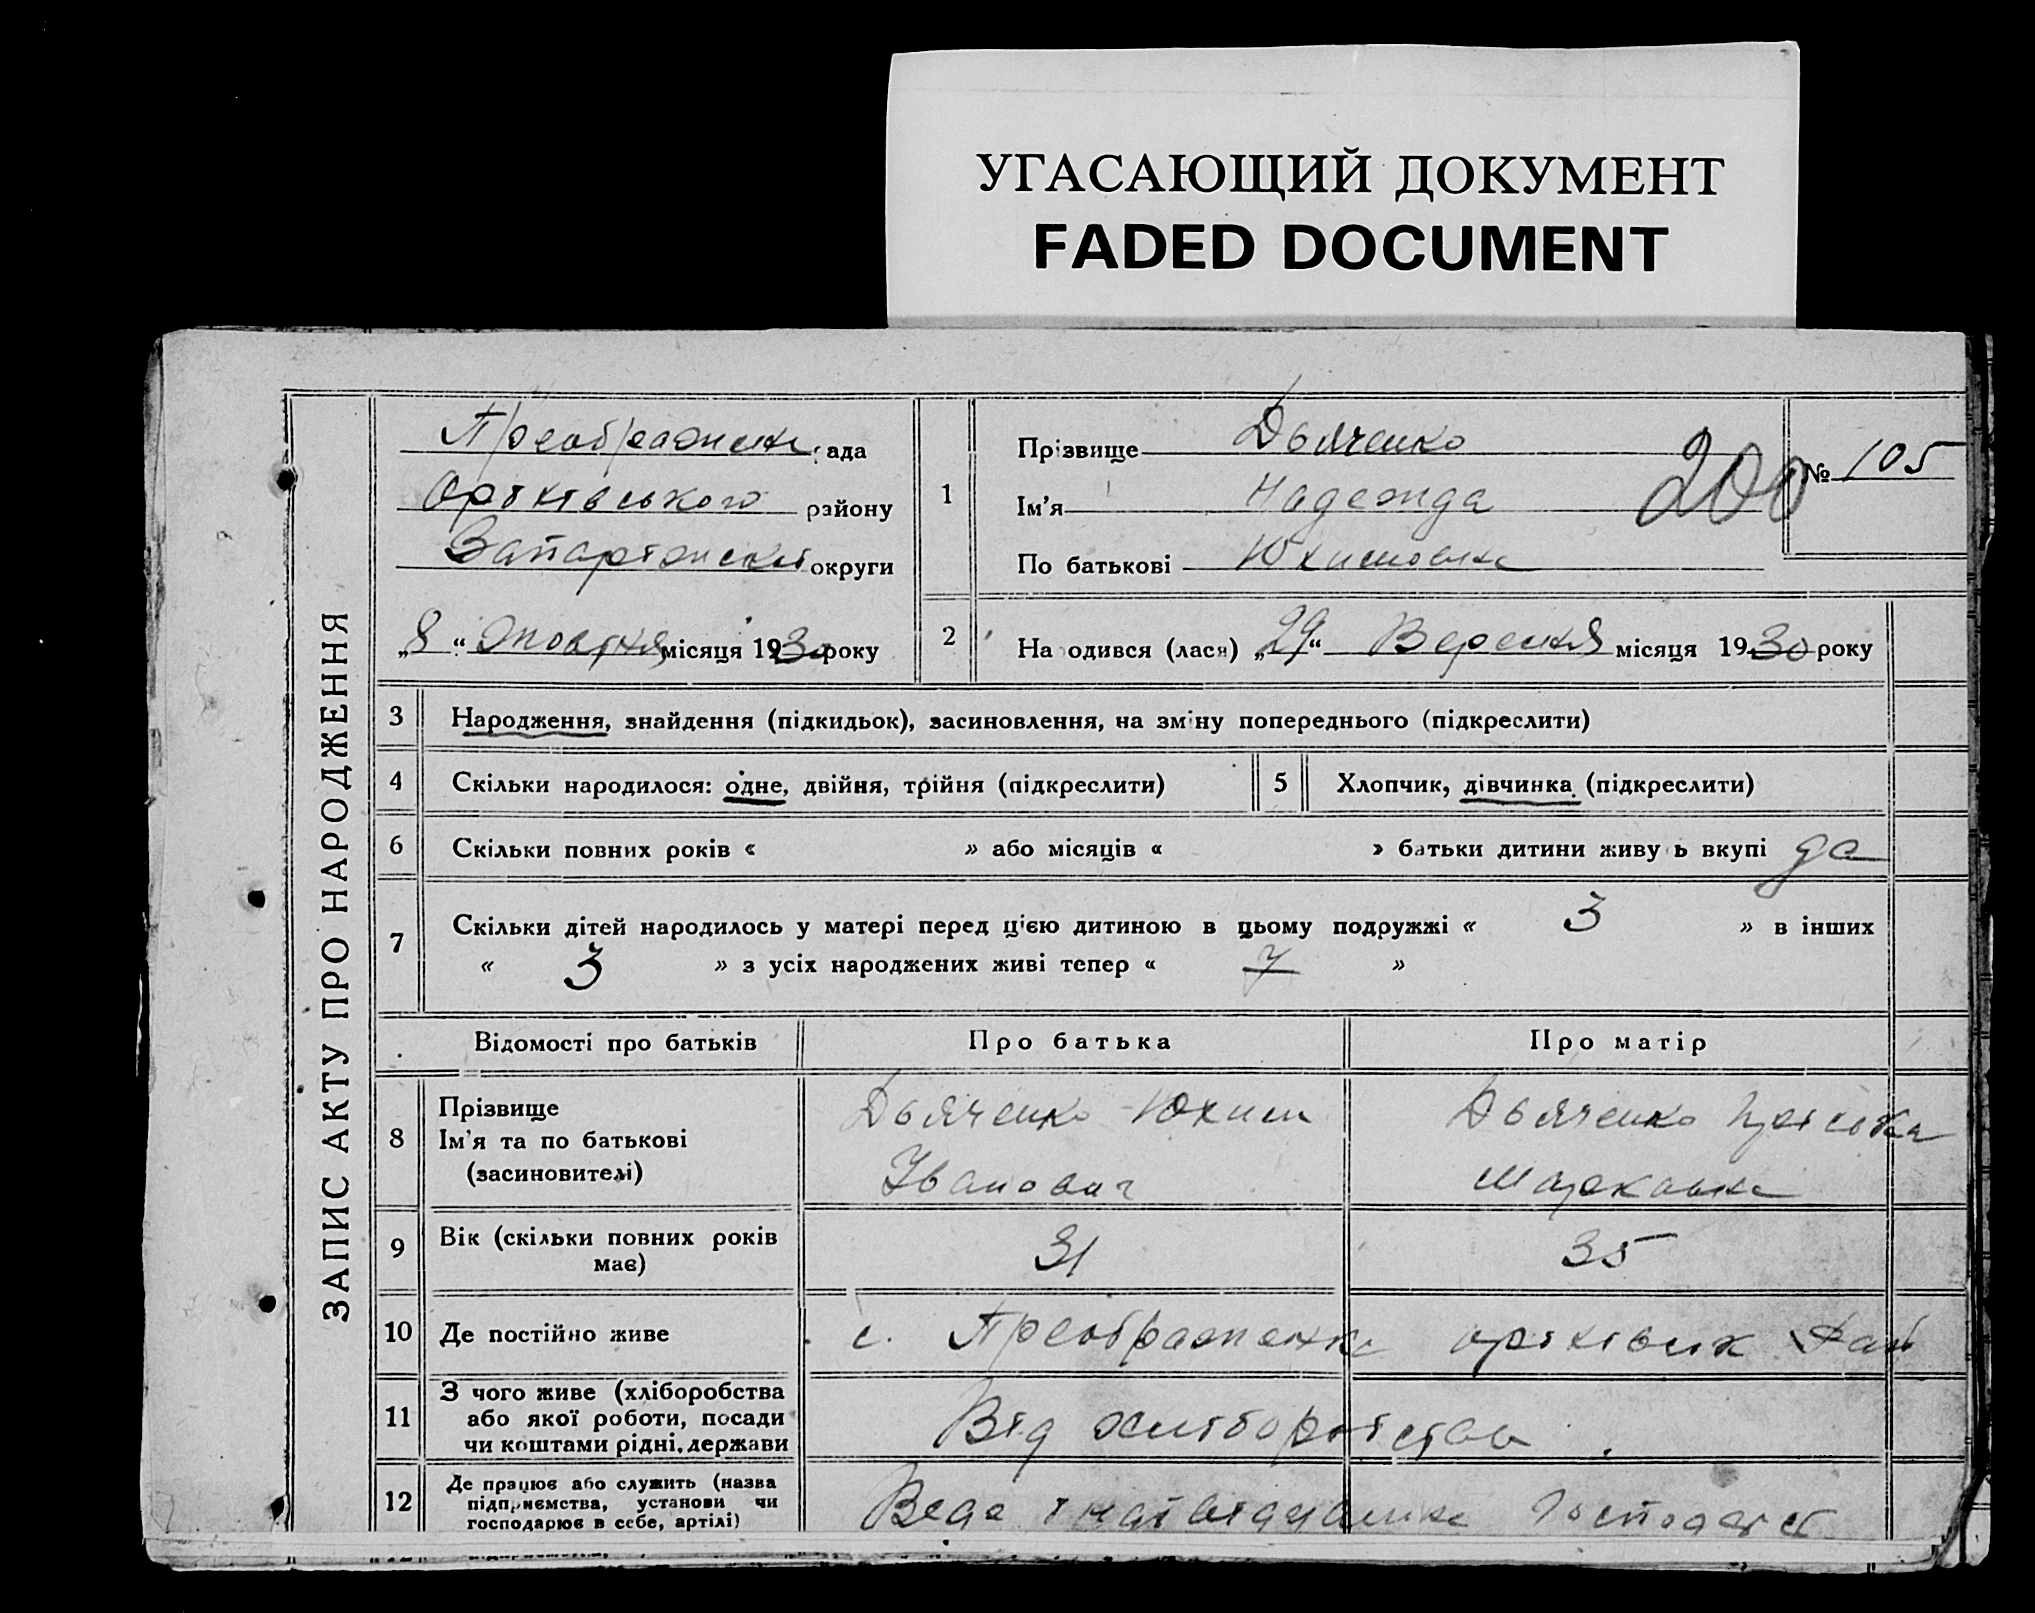 УГАСАЮЩИЙ ДОКУМЕНТ
FADED DOCUMENT
ЗАПИС АКТУ ПРО НАРОДЖЕННЯ
Преображенк ада
Оріхівського району
Запоріжської округи
„8“ Жовтня місяця 1930 року
1
Прізвище Дьяченко
Ім'я Надежда
По батькові Юхимовна
200
№ 105
2
На одився (лася) „29“ Вересня місяця 1930 року
3 Народження, знайдення (підкидьок), засиновлення, на зміну попереднього (підкреслити)
4 Скільки народилося: одне, двійня, трійня (підкреслити)
5 Хлопчик, дівчинка (підкреслити)
6 Скільки повних років « » або місяців « » батьки дитини живу ь вкупі да
7 Скільки дітей народилось у матері перед цією дитиною в цьому подружжі « 3 » в інших
« 3 » з усіх народжених живі тепер « 7 »
Відомості про батьків Про батька Про матір
8
Прізвище
Ім'я та по батькові
(засиновителі)
Дьяченко Юхим
Іванович
Дьяченко
Марковна
9
Вік (скільки повних років
має)
31
35
10 Де постійно живе
с. Преображенка Оріхівськ Рай
11
З чого живе (хліборобства
або якої роботи, посади
чи коштами рідні, держави
Від хліборобства
12
Де працює або служить (назва
підприємства, установи чи
господарює в себе, артілі)
Веде індівідуальне господарст